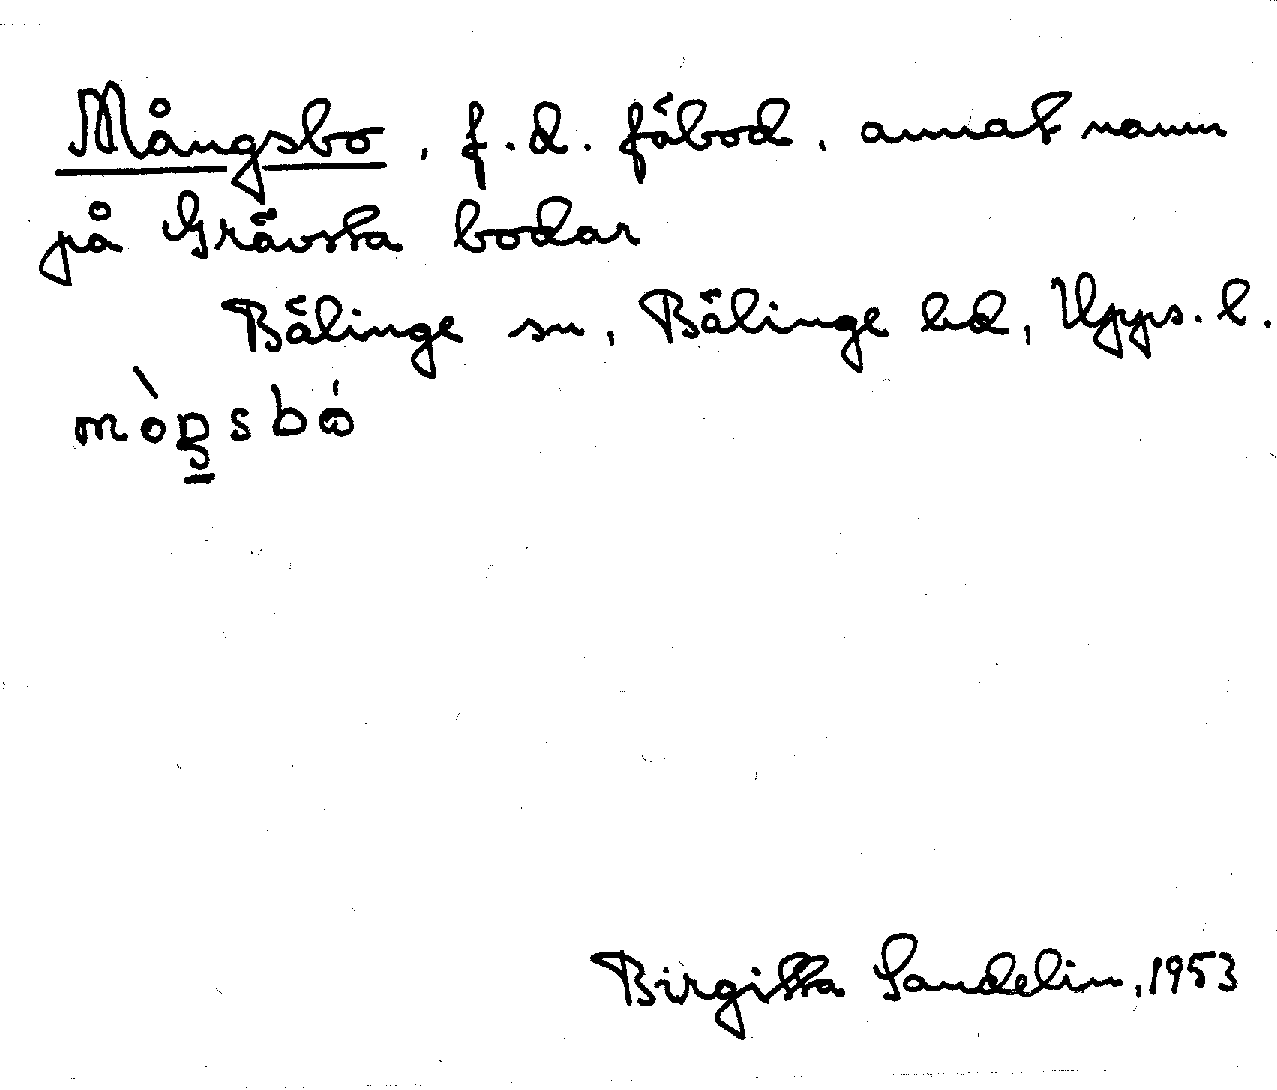 Mångsbo, f.d. fäbod, annat namn
på Grävsta bodar
Bälinge sn, Bälinge hd, Upps. l.
Birgitta Sandelin, 1953